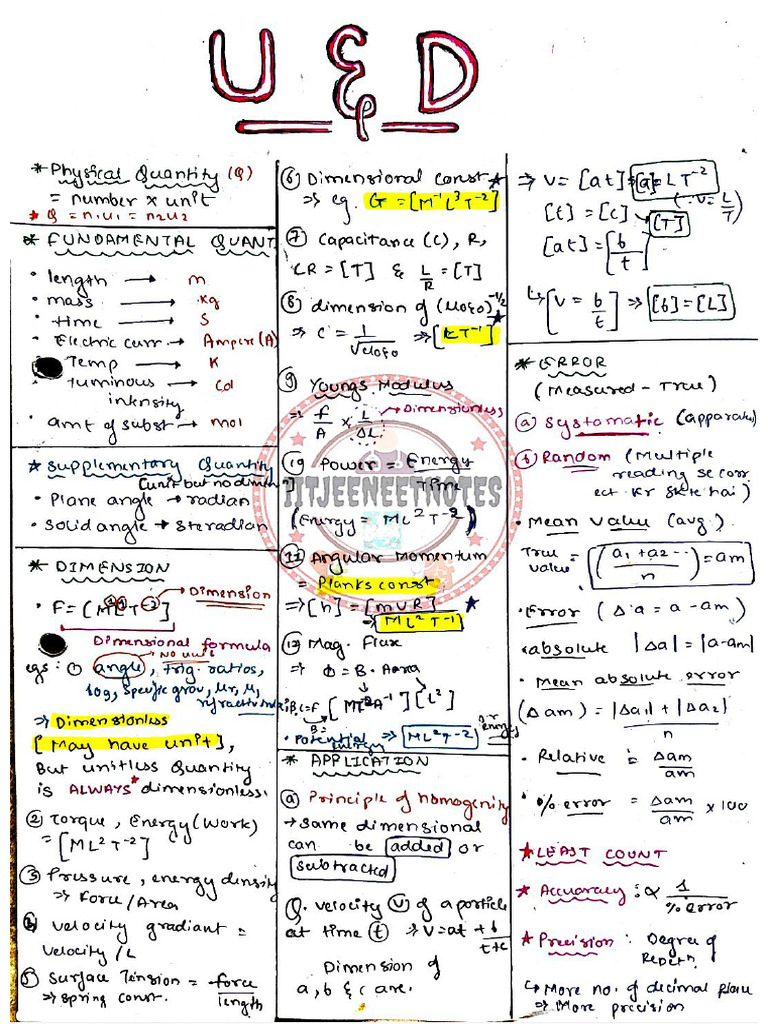 U & D
* Physical Quantity (Q)
= number x unit
* Q = n1u1 = n2u2
* FUNDAMENTAL QUANT
• length → m
• mass → kg
• time → s
• Electric curr. → Ampere (A)
• Temp → K
• luminous intensity → Cd
• amt of subst → mol
* Supplementary Quantity
(unit but no dimen
• Plane angle → radian
• Solid angle → steradian
* DIMENSION
• F = [M¹L¹T⁻²] → Dimension
Dimensional formula
egs: ① angle, trig. ratios,
no unit
log, specific grav, μr, μ,
⇒ Dimensionless
[May have unit],
But unitless Quantity
is ALWAYS* dimensionless.
② Torque, Energy (Work)
= [ML²T⁻²]
③ Pressure, energy density
⇒ Force/Area
④ velocity gradient =
velocity/L
⑤ Surface Tension = force/length
⇒ spring const.
⑥ Dimensional const *
⇒ eg. G = [M⁻¹L³T⁻²]
⑦ Capacitance (C), R,
CR = [T] & L/R = [T]
⑧ dimension of (μ0ε0)^-1/2
⇒ C = 1/√μ0ε0 ⇒ [LT⁻¹] *
⑨ Youngs Modulus
⇒ f/A x L/ΔL → Dimensionless
⑩ Power = Energy/Time
IITJEENEETNOTES
(Energy = ML²T⁻²)
⑪ Angular Momentum
= Planks const
⇒ [h] = [mVR] *
⇒ ML²T⁻¹
⑫ Mag. Flux
⇒ ϕ = B. Area
[MT⁻²A⁻¹] [L²]
• Potential energy ⇒ [ML²T⁻²]
* APPLICATION
ⓐ Principle of homogenity
→ same dimensional
can be added or
subtracted
Q. velocity (v) of a particle
at time (t) ⇒ v = at + b/t+c
Dimension of
a, b & c are.
⇒ v = [at] ⇒ [a] = LT⁻²
[t] = [c] (∵ v = L/T)
[T]
[at] = [b/t]
↳ [v = b/t] ⇒ [b] = [L]
* ERROR
(Measured - True)
ⓐ Systamatic (apparatus)
ⓑ Random (Multiple
reading se corr
ect kr skte hai)
• Mean value (avg.)
True value = (a1 + a2 .../n) = am
• Error (Δa = a - am)
• absolute |Δa| = |a-am|
• Mean absolute error
(Δam) = |Δa1| + |Δa2|/n
• Relative = Δam/am
• % error = Δam/am x 100
* LEAST COUNT
* Accuaracy : ∝ 1/% error
* Precision : Degree of
↳ More no. of decimal place
⇒ More precision